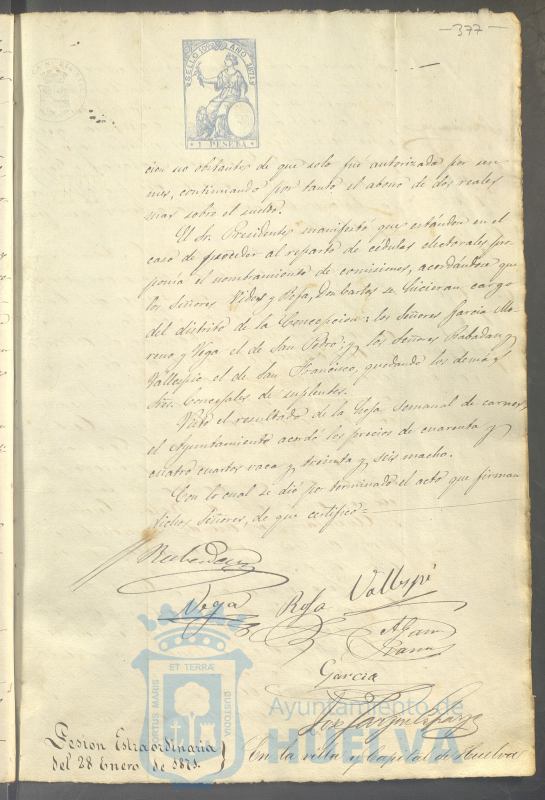 —377—
SELLO 10º AÑO 1871
1 PESETA
cion no obstante de que solo fué autorizado por un
mes, continuando por tanto el abono de dos reales
mas sobre el sueldo.
El Sr. Presidente manifestó que estándose en el
caso de proceder al reparto de cédulas electorales, pro
ponía el nombramiento de comisiones, acordándose que
los Señores Vides y Rofa, Don Carlos se hicieran cargo
del distrito de la Concepcion; los Señores García Mo
reno y Vega el de San Pedro; y los Señores Rabadan y
Vallespin el de San Francisco, quedando los demas
Sres. Concejales de suplentes.
Visto el resultado de la semanal de carnes,
el Ayuntamiento acordó los precios de cuarenta y
cuatro cuartos vaca y treinta y seis macho.
Con lo cual se dió por terminado el acto que firman
dichos Señores, de que certifico=
Vega Rofa Vallespi
García
ET TERRÆ
PORTUS MARIS
CUSTODIA
Ayuntamiento de
HUELVA
Sesion Estraordinaria
del 28 Enero de 1871.
En la villa y Capital de Huelva